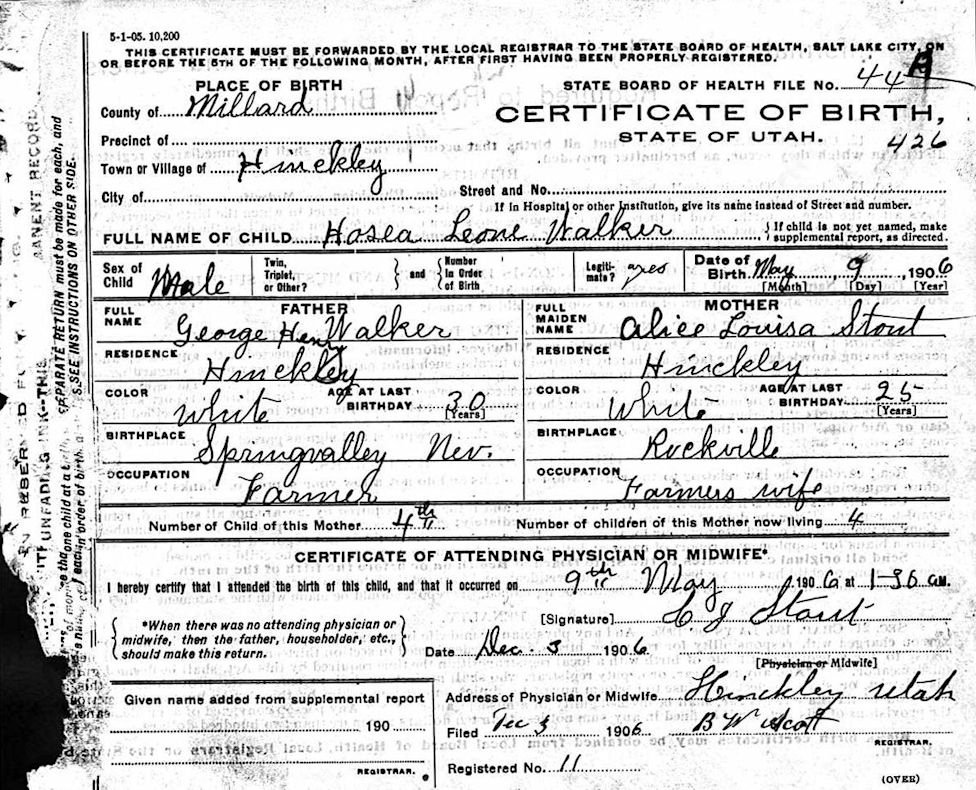 5-1-05. 10,200
THIS CERTIFICATE MUST BE FORWARDED BY THE LOCAL REGISTRAR TO THE STATE BOARD OF HEALTH, SALT LAKE CITY, ON
OR BEFORE THE 5TH OF THE FOLLOWING MONTH, AFTER FIRST HAVING BEEN PROPERLY REGISTERED.
PLACE OF BIRTH
STATE BOARD OF HEALTH FILE NO. 44 A
County of Millard
CERTIFICATE OF BIRTH,
STATE OF UTAH.
426
Precinct of
Town or Village of Hinckley
City of
Street and No.
If in Hospital or other Institution, give its name instead of Street and number.
FULL NAME OF CHILD Hosea Leone Walker { If child is not yet named, make
supplemental report, as directed.
Sex of Child Male
Twin, Triplet, or Other? } and { Number in Order of Birth
Legiti-mate? yes
Date of Birth May 9, 1906
[Month] [Day] [Year]
FATHER
FULL NAME George Henry Walker
RESIDENCE Hinckley
COLOR White AGE AT LAST BIRTHDAY 30 [Years]
BIRTHPLACE Springvalley Nev.
OCCUPATION Farmer
MOTHER
FULL MAIDEN NAME Alice Louisa Stout
RESIDENCE Hinckley
COLOR White AGE AT LAST BIRTHDAY 25 [Years]
BIRTHPLACE Rockville
OCCUPATION Farmers wife
Number of Child of this Mother 4th Number of children of this Mother now living 4
CERTIFICATE OF ATTENDING PHYSICIAN OR MIDWIFE*
I hereby certify that I attended the birth of this child, and that it occurred on 9th May, 1906 at
*When there was no attending physician or
midwife, then the father, householder, etc.,
should make this return.
[Signature] Stout
Date Dec. 3 1906
[Physician or Midwife]
Given name added from supplemental report
190
REGISTRAR.
Address of Physician or Midwife Hinckley Utah
Filed Dec 3 1906 B W Scott
REGISTRAR.
Registered No. 11
(OVER)
UNFADING INK—THIS
ANENT RECORD
SEPARATE RETURN must be made for each, and
SEE INSTRUCTIONS ON OTHER SIDE.